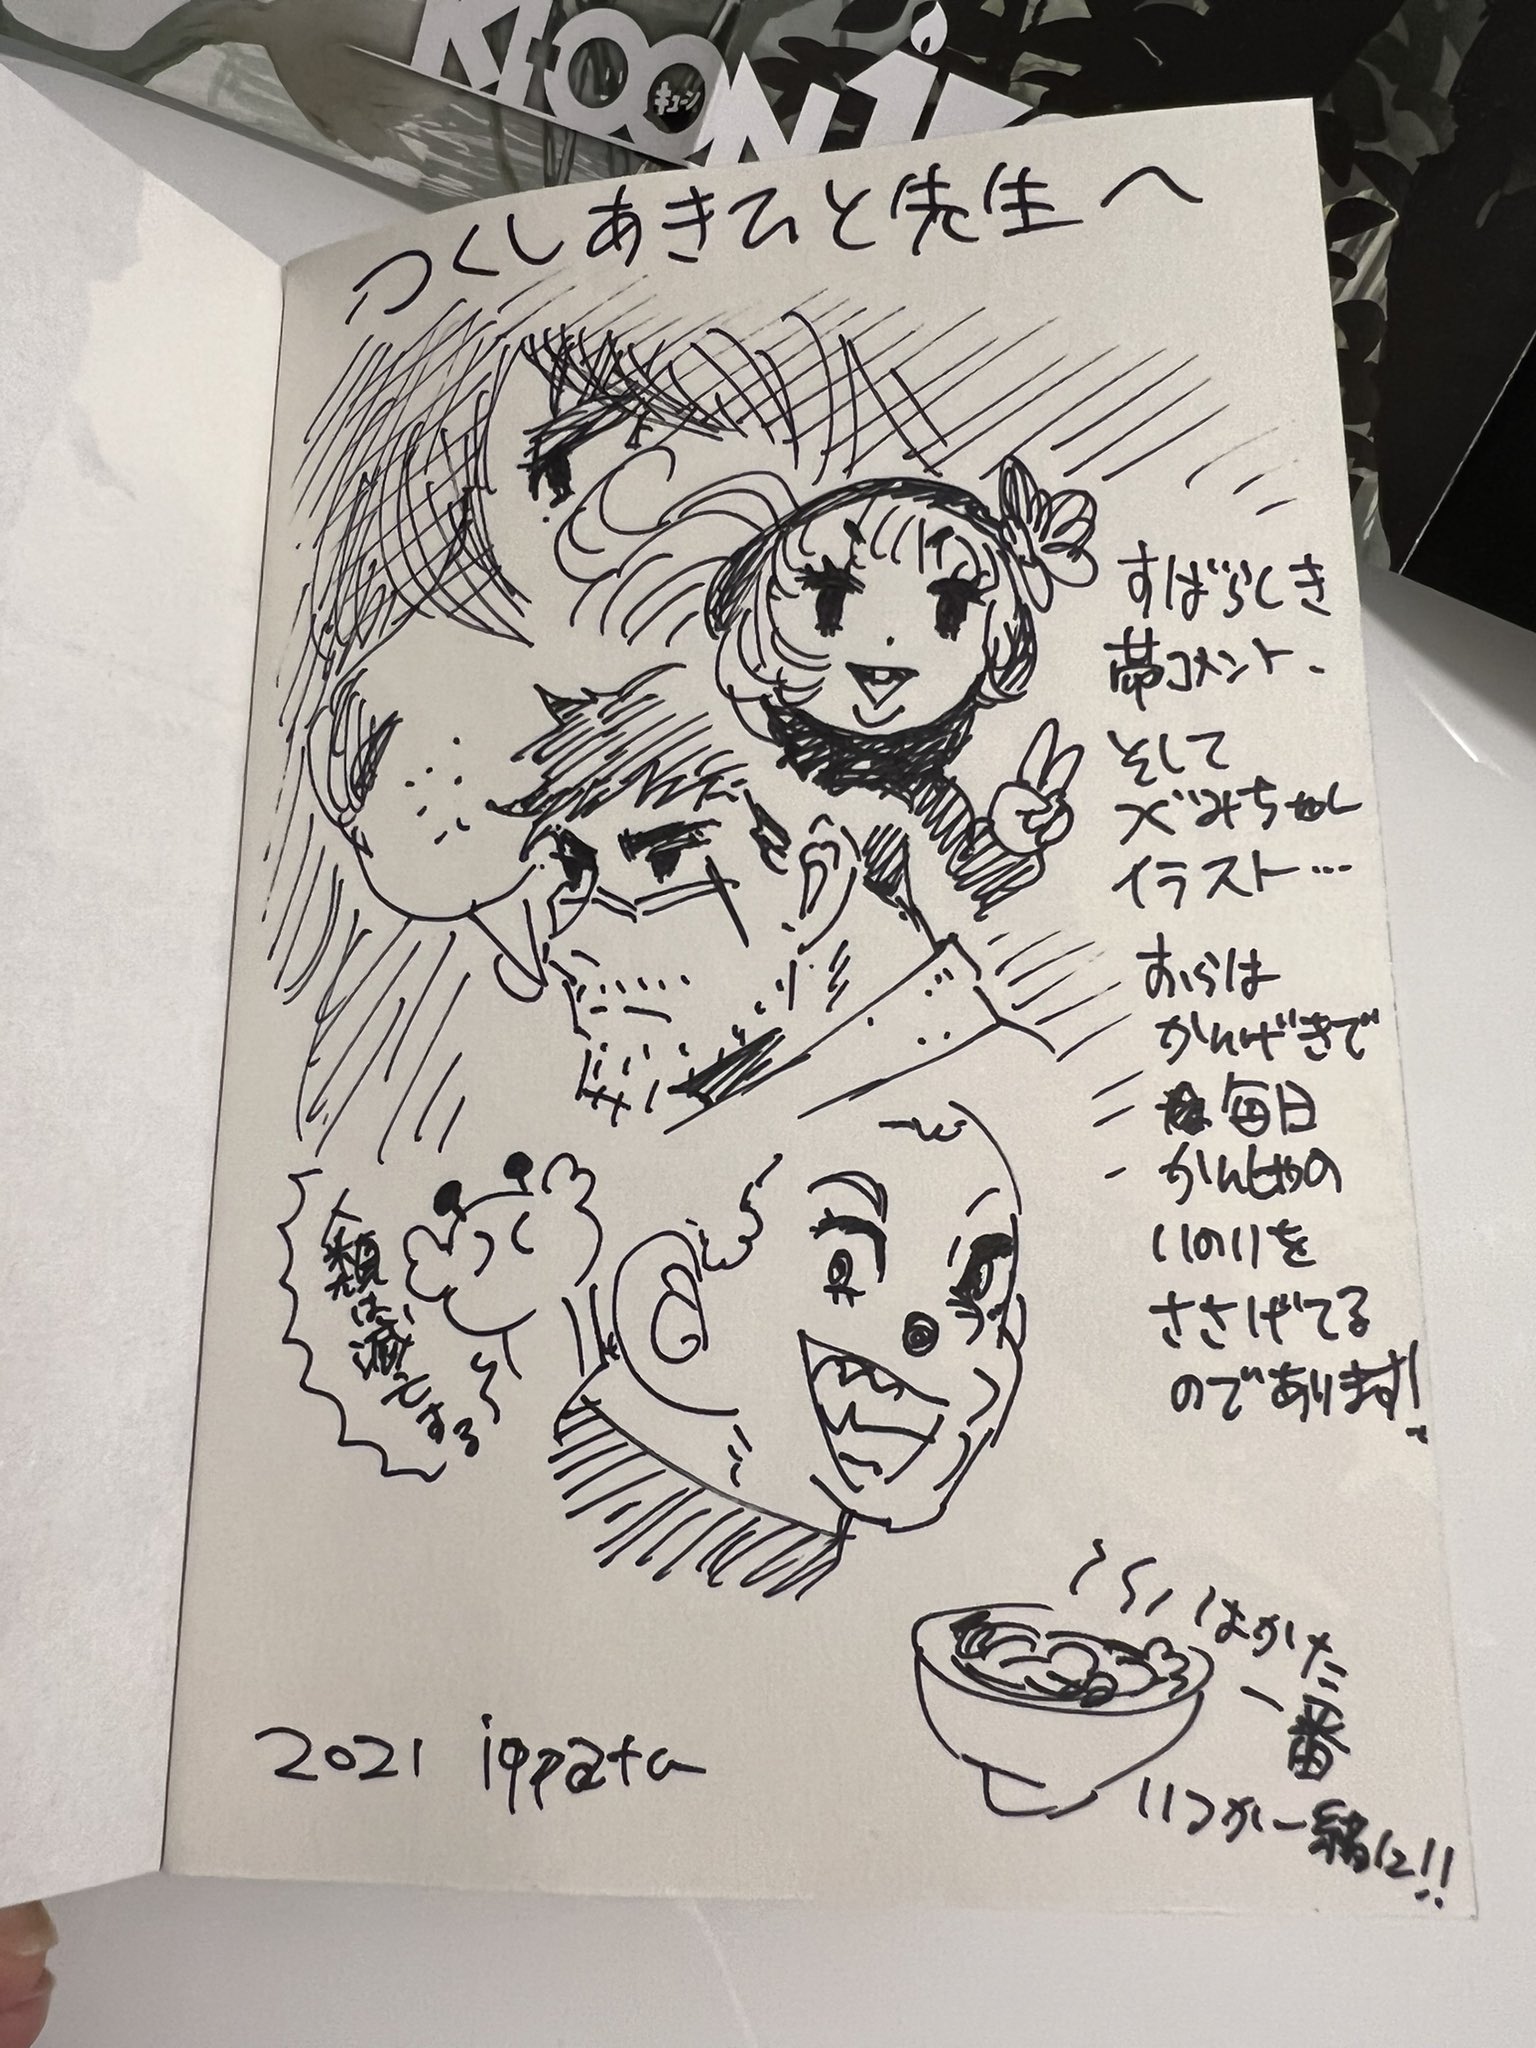 KTOON
キューン
つくしあきひと先生へ
すばらしき
帯コメント、
そして
ズみちゃん
イラスト…
おらは
かんげきで
毎日
かんしゃの
いのりを
ささげてる
のであります!
人類は、
滅亡する
はかた
一番
いつか一緒に!!
2021 ippata